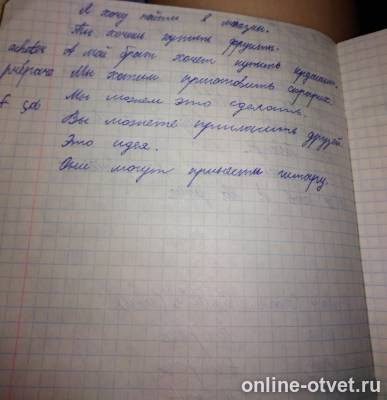 Я хочу пойти в
Ты хочешь купить фрукты.
А мой брат хочет купить
Мы хотим приготовить сюрприз.
Мы можем это сделать.
Вы можете пригласить друзей.
Это идея.
Они могут принести гитару.
online-otvet.ru